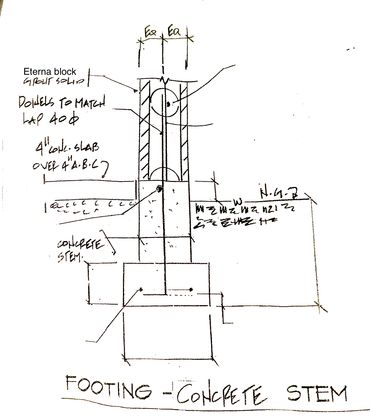 Ea Ea
Eterna block
GROUT SOLID
DOWELS TO MATCH
LAP 40 Φ
4" CONC. SLAB
OVER 4" A.B.C.
N.G.
CONCRETE
STEM.
FOOTING - CONCRETE STEM